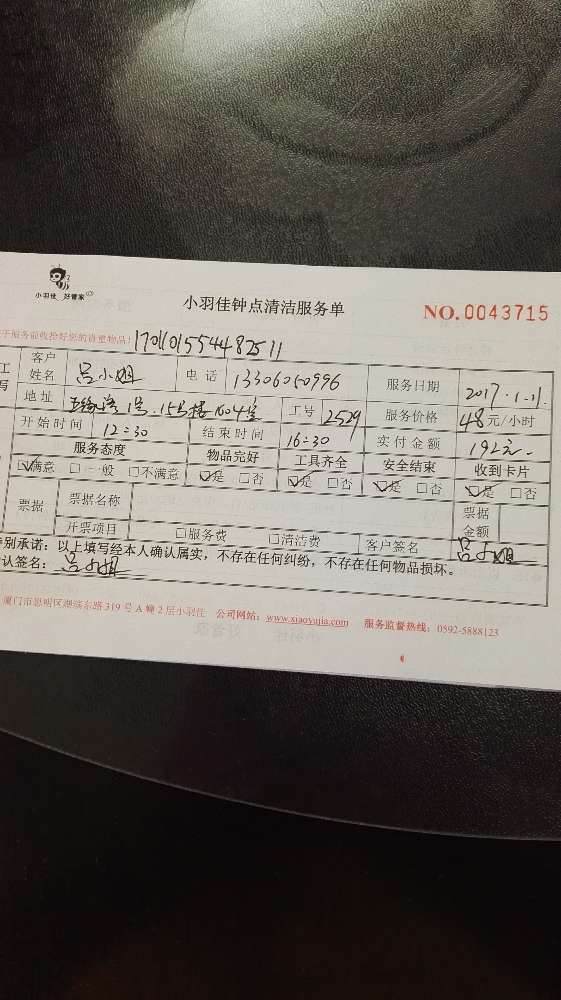 小羽佳 好管家
小羽佳钟点清洁服务单
NO.0043715
于服务前收拾好您的贵重物品! 1701101554482511
工 客户姓名 吕小姐 电话 13306050996 服务日期 2017.1.11
写 地址 1号.15号楼1604室 工号 2529 服务价格 48元/小时
开始时间 12:30 结束时间 16:30 实付金额 192元
服务态度 物品完好 工具齐全 安全结束 收到卡片
☑满意 □一般 □不满意 ☑是 □否 ☑是 □否 ☑是 □否 ☑是 □否
票据 票据名称 票据金额
开票项目 □服务费 □清洁费 客户签名 吕小姐
别承诺：以上填写经本人确认属实，不存在任何纠纷，不存在任何物品损坏。
认签名：吕小姐
厦门市思明区湖滨东路319号A幢2层小羽佳 公司网站：www.xiaoyujia.com 服务监督热线：0592-5888123